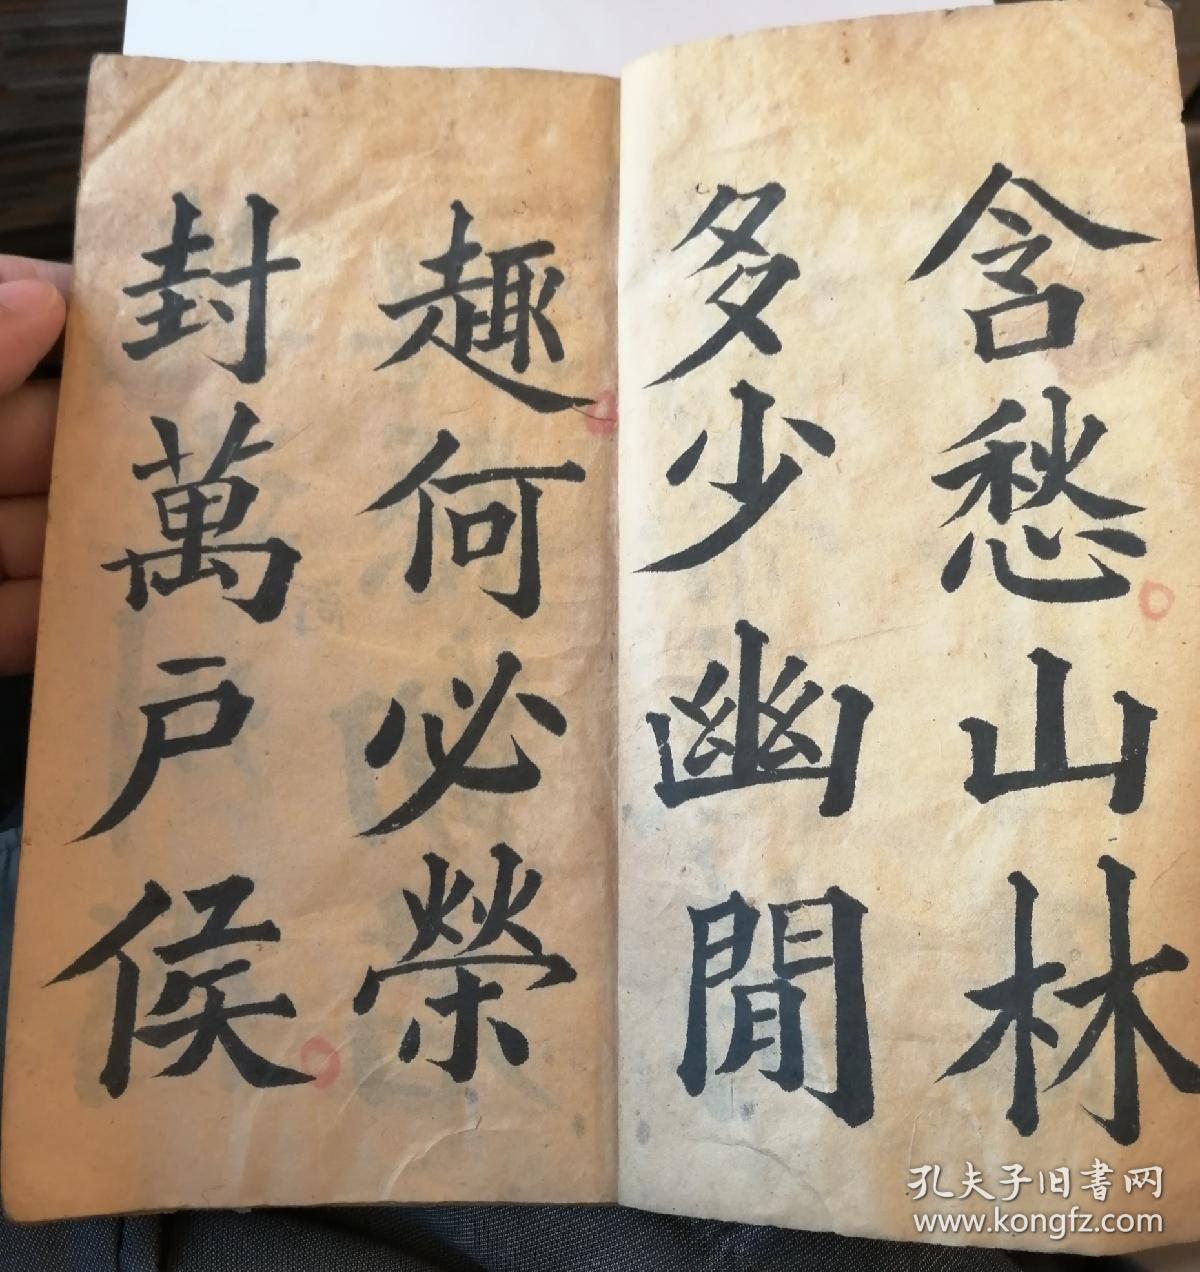 含愁山林
多少幽閒
趣何必榮
封萬户侯
孔夫子旧書网
www.kongfz.com